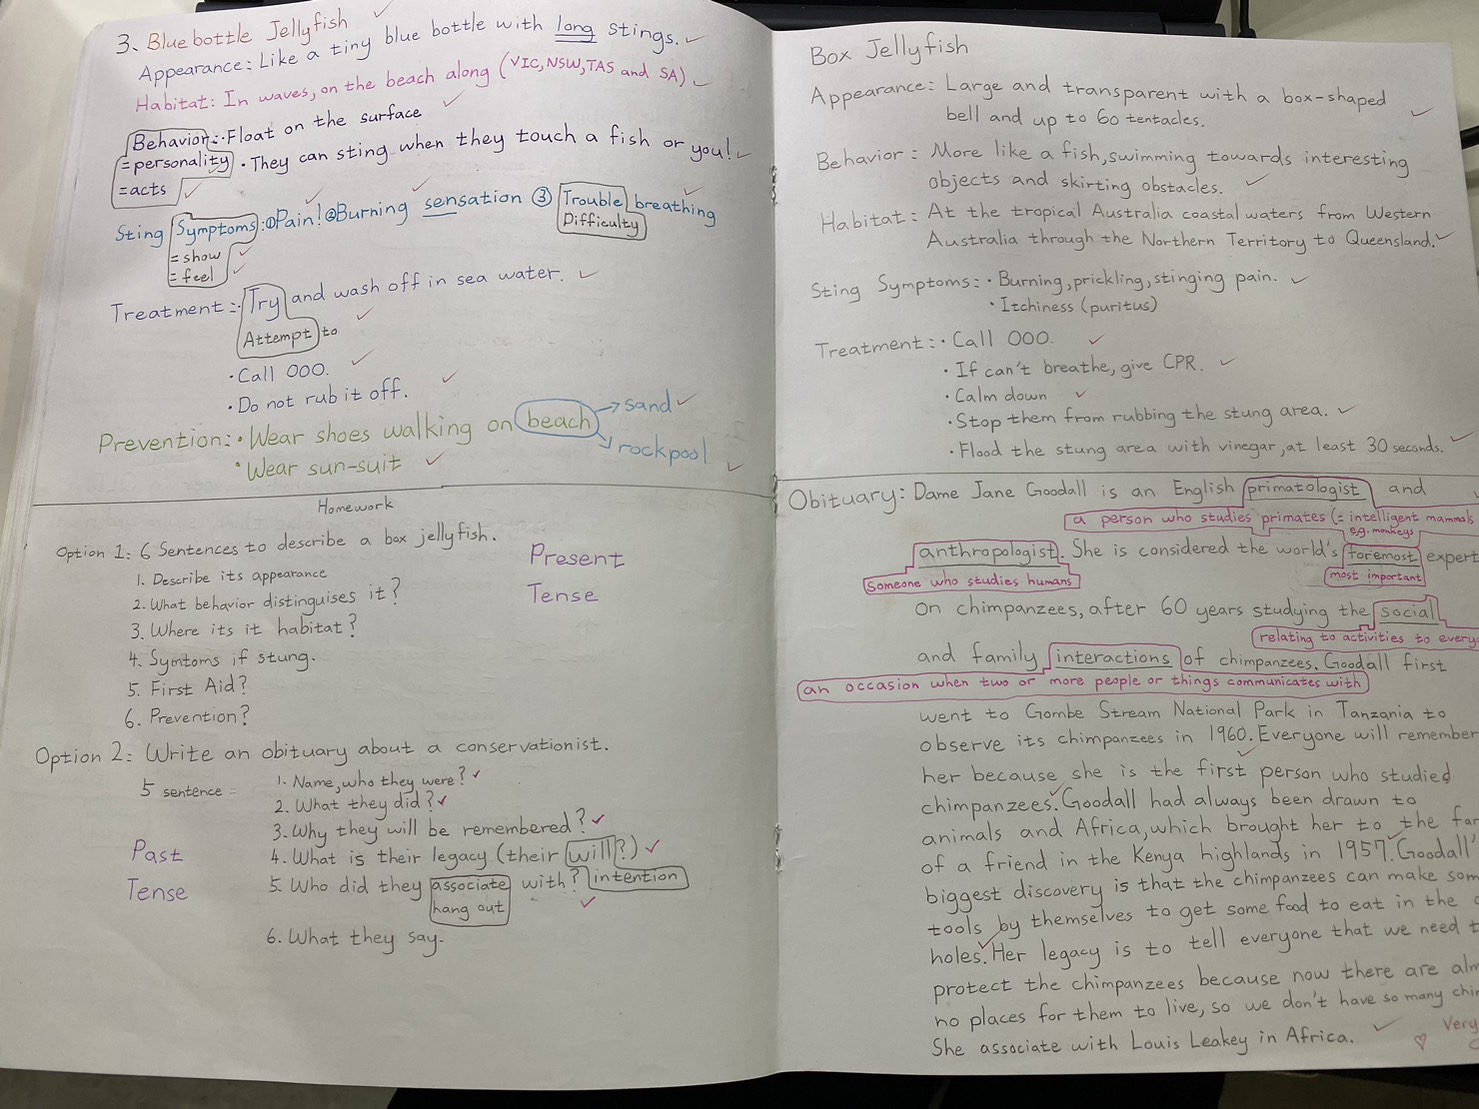 3、Bluebottle Jellyfish
Appearance: Like a tiny blue bottle with long stings.
Habitat: In waves, on the beach along (VIC, NSW, TAS and SA)
Behavior: · Float on the surface
= personality · They can sting when they touch a fish or you!
= acts
Sting Symptoms: ① Pain! ② Burning sensation ③ Trouble breathing
Difficulty
= show
= feel
Treatment: · Try and wash off in sea water.
Attempt to
· Call 000.
· Do not rub it off.
Prevention: · Wear shoes walking on beach → sand
→ rockpool
· Wear sun-suit
Homework
Option 1: 6 Sentences to describe a box jellyfish.
Present
Tense
1. Describe its appearance
2. What behavior distinguises it?
3. Where its it habitat?
4. Symtoms if stung.
5. First Aid?
6. Prevention?
Option 2: Write an obituary about a conservationist.
5 sentence
1. Name, who they were?
2. What they did?
3. Why they will be remembered?
4. What is their legacy (their will?)
5. Who did they associate with? intention
hang out
6. What they say.
Past
Tense
Box Jellyfish
Appearance: Large and transparent with a box-shaped
bell and up to 60 tentacles.
Behavior: More like a fish, swimming towards interesting
objects and skirting obstacles.
Habitat: At the tropical Australia coastal waters from Western
Australia through the Northern Territory to Queensland.
Sting Symptoms: · Burning, prickling, stinging pain.
· Itchiness (puritus)
Treatment: · Call 000.
· If can't breathe, give CPR.
· Calm down
· Stop them from rubbing the stung area.
· Flood the stung area with vinegar, at least 30 seconds.
Obituary: Dame Jane Goodall is an English primatologist and
a person who studies primates (= intelligent mammals
e.g. monkeys
anthropologist. She is considered the world's foremost expert
someone who studies humans
most important
on chimpanzees, after 60 years studying the social
relating to activities to
and family interactions of chimpanzees. Goodall first
an occasion when two or more people or things communicates with
went to Gombe Stream National Park in Tanzania to
observe its chimpanzees in 1960. Everyone will remember
her because she is the first person who studied
chimpanzees. Goodall had always been drawn to
animals and Africa, which brought her to the
of a friend in the Kenya highlands in 1957. Goodall'
biggest discovery is that the chimpanzees can make
tools by themselves to get some food to eat in the
holes. Her legacy is to tell everyone that we need
protect the chimpanzees because now there are
no places for them to live, so we don't have so many
She associate with Louis Leakey in Africa.
Very